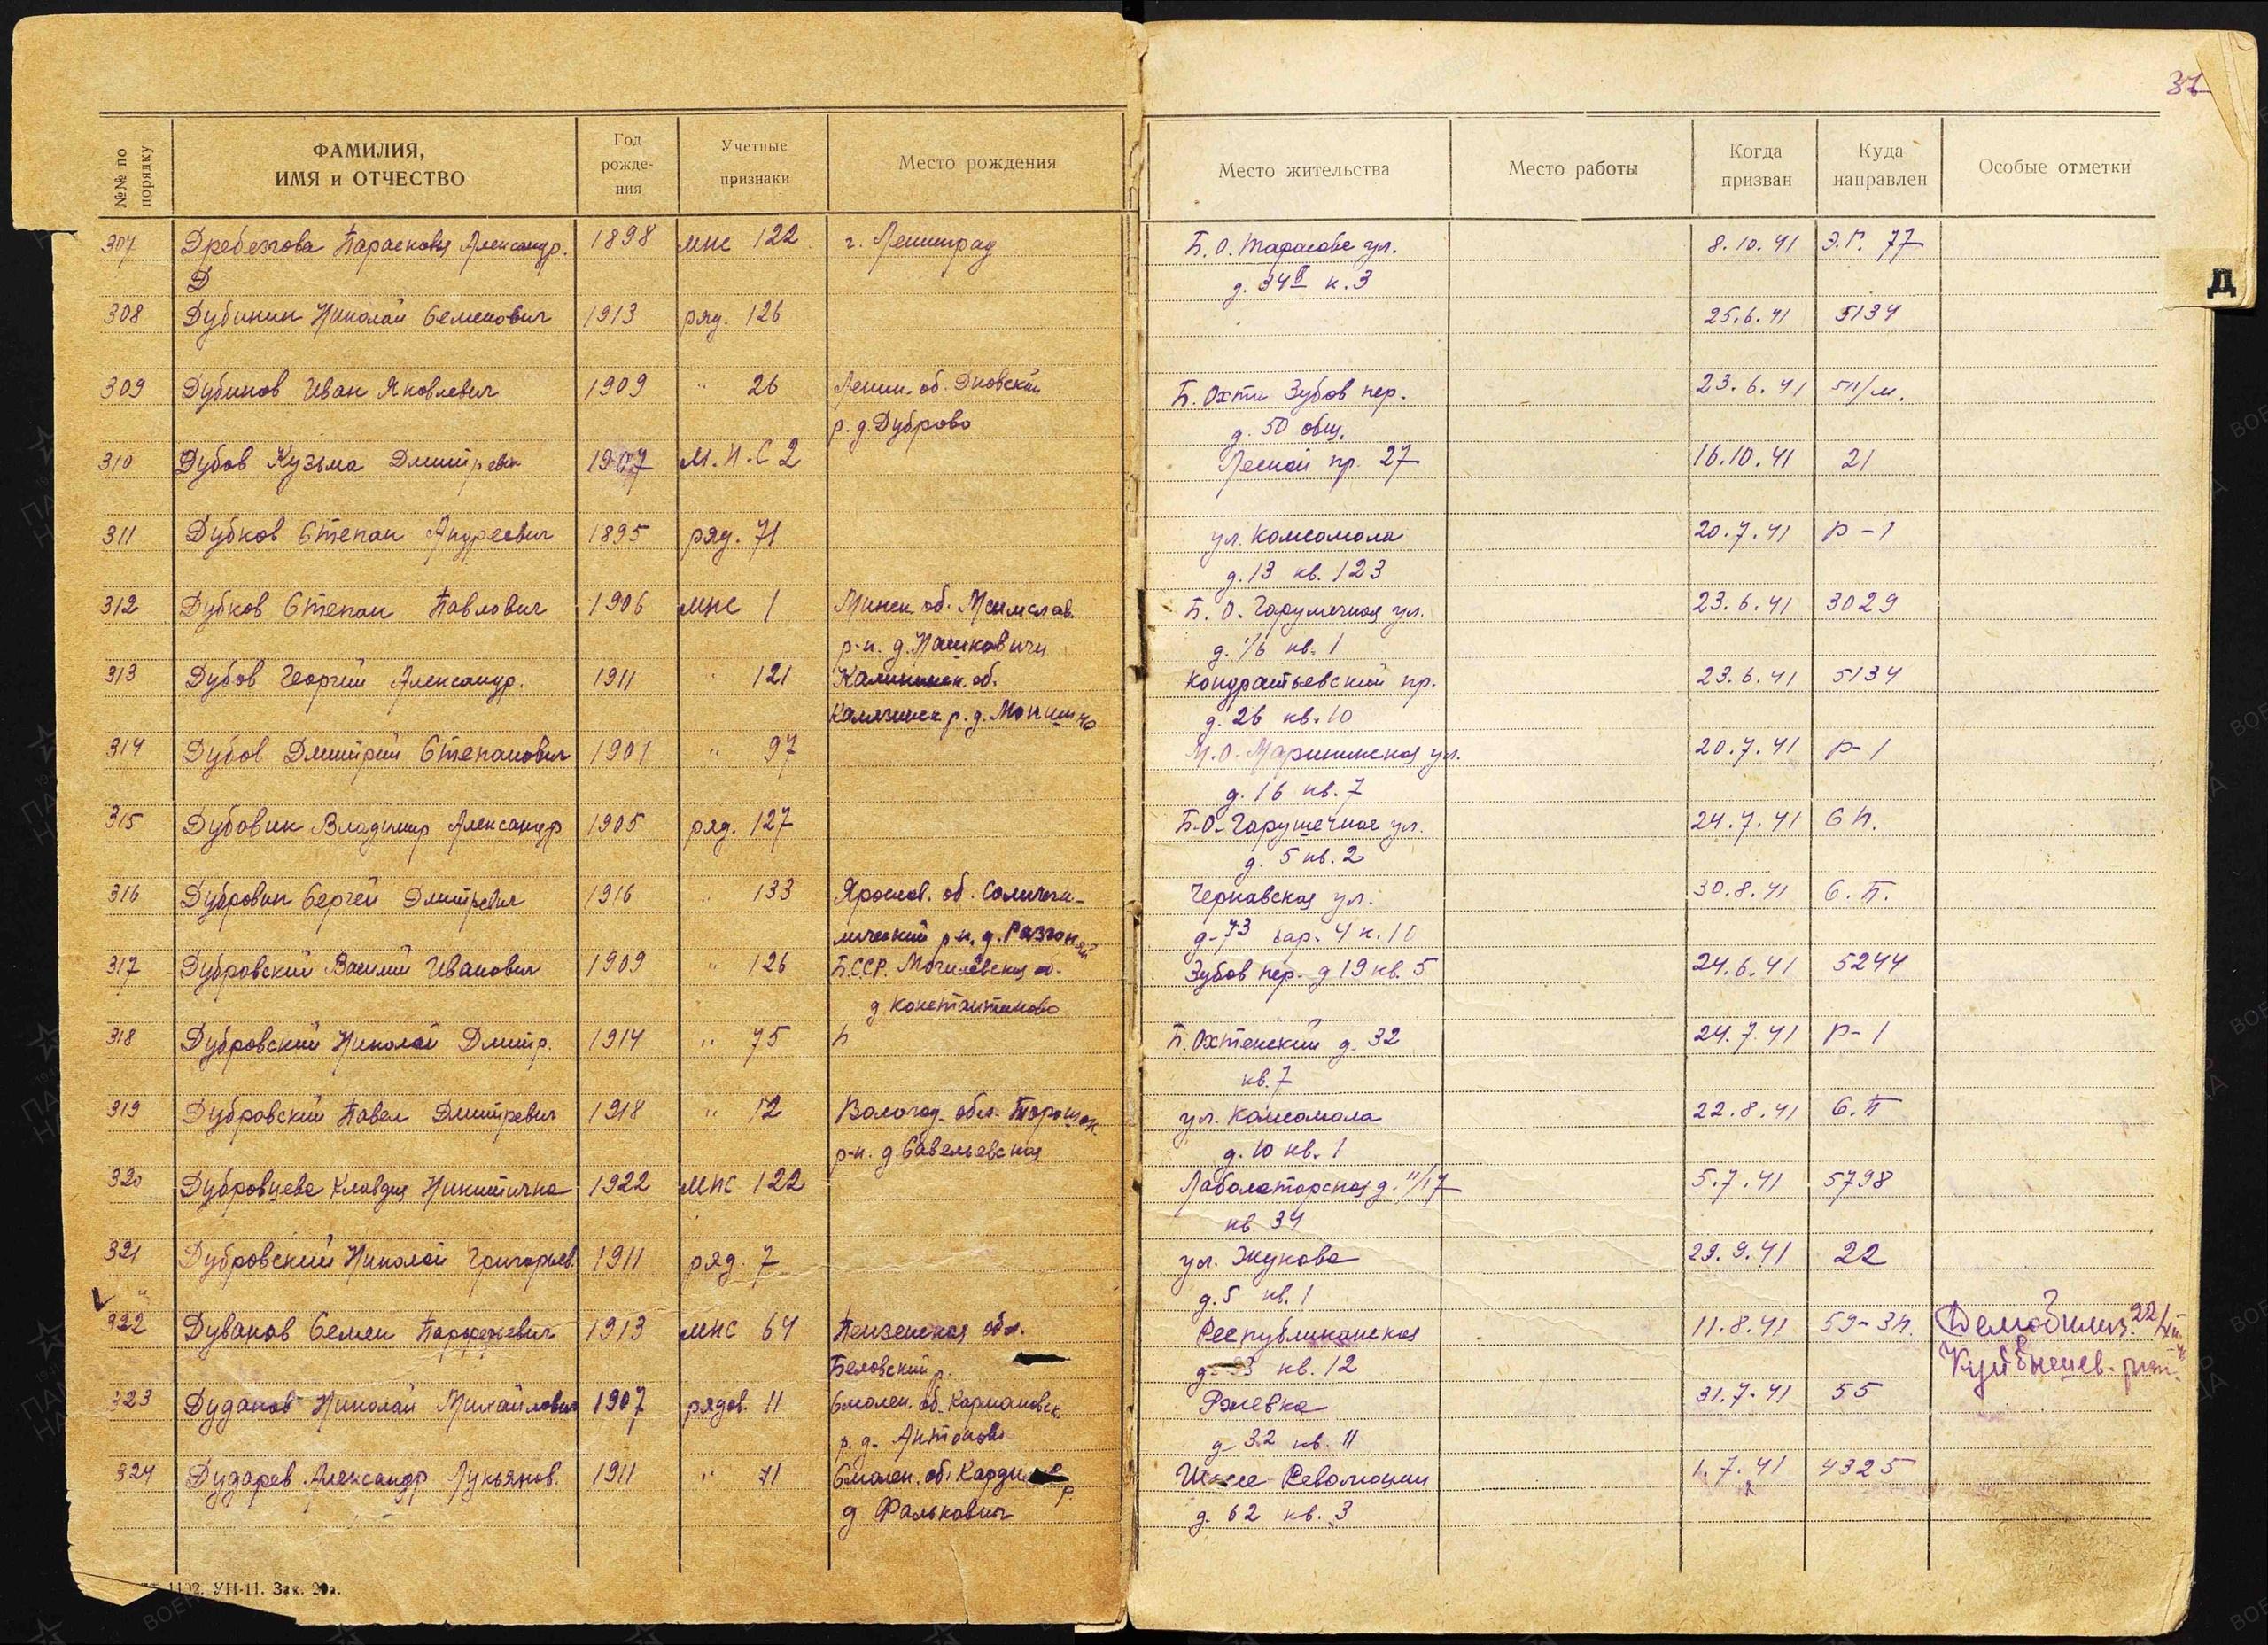 37
№№ по порядку
ФАМИЛИЯ, ИМЯ и ОТЧЕСТВО
Год рожде- ния
Учетные признаки
Место рождения
Место жительства
Место работы
Когда призван
Куда направлен
Особые отметки
Д
307 Дребезгова Парасковья Александр. 1898 мнс 122 г. Ленинград Б. О. Тарасова ул. 8.10.41 Э.Г. 77
Д д. 34 к. 3
308 Дубинин Николай Семенович 1913 ряд. 126 25.6.41 5134
309 Дубинов Иван Яковлевич 1909 " 26 Ленин. об. Дновский Б. Охта Зубов пер. 23.6.41
р. д. Дуброво д. 50 общ.
310 Дубов Кузьма Дмитревич 1907 М.Н.С 2 Лесной пр. 27 16.10.41 21
311 Дубков Степан Андреевич 1895 ряд. 71 ул. Комсомола 20.7.41 Р-1
д. 13 кв. 123
312 Дубков Степан Павлович 1906 мнс 1 Минск. об. Мстислав. Б. О. ул. 23.6.41 3029
р-н. д. Пашковичи д. 1/6 кв. 1
313 Дубов Георгий Александр. 1911 " 121 Калининск. об. Кондратьевский пр. 23.6.41 5134
Калязинск р. д. д. 26 кв. 10
314 Дубов Дмитрий Степанович 1901 " 97 М.О. Мариинская ул. 20.7.41 Р-1
д. 16 кв. 7
315 Дубовик Владимир Александр 1905 ряд. 127 Б.О. ул. 24.7.41 С П.
д. 5 кв. 2
316 Дубровин Сергей Дмитревич 1916 " 133 Ярослав. об. Солига- Чернавская ул. 30.8.41 С. П.
лический р-н. д. д-73 кар. 4 к. 10
317 Дубровский Василий Иванович 1909 " 126 БССР. Могилевская об. Зубов пер. д 19 кв. 5 24.6.41 5244
д Константиново
318 Дубровский Николай Дмитр. 1914 " 75 Б. Охтенский д. 32 24.7.41 Р-1
кв. 7
319 Дубровский Павел Дмитревич 1918 " 12 Вологод. обл. ул. Комсомола 22.8.41 С. П
р-н. д. Савельевская д. 10 кв. 1
320 Дубровцева Клавдия Никитична 1922 мнс 122 Лаболаторская д. 11/17 5.7.41 5798
кв. 34
321 Дубровский Николай Григорьев. 1911 ряд. 7 ул. Жукова 29.9.41 22
д. 5 кв. 1
322 Дуванов Семен Парфеньевич 1913 мнс 64 Пензенская обл. Республиканская 11.8.41 59-ЗП. Демобилиз.
Беловский р. кв. 12 Куйбышев.
323 Дуданов Николай Михайлович 1907 рядов. 11 Смолен. об. Кармановск. Ржевка 31.7.41 55
р. д. Антоново д 32 кв. 11
324 Дударев Александр Лукьянов. 1911 " 71 Смолен. об. Шоссе Революции 1.7.41 4325
д Фалькович д. 62 кв. 3
1102. УН-11. Зак.